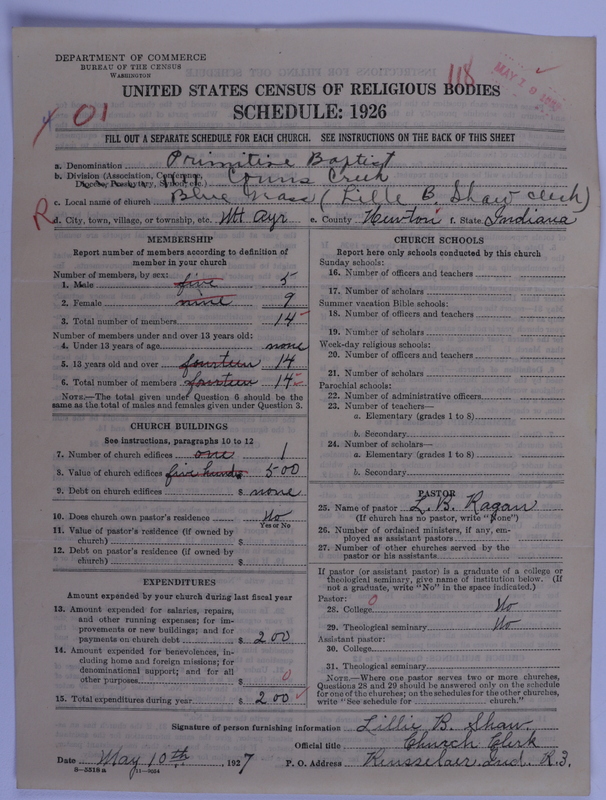 DEPARTMENT OF COMMERCE
BUREAU OF THE CENSUS
WASHINGTON
118
MAY 1
UNITED STATES CENSUS OF RELIGIOUS BODIES
01
SCHEDULE: 1926
FILL OUT A SEPARATE SCHEDULE FOR EACH CHURCH. SEE INSTRUCTIONS ON THE BACK OF THIS SHEET
a. Denomination Primitive Baptist
b. Division (Association, Conference, Diocese, Presbytery, Synod, etc.) Creek
c. Local name of church Blue Grass (Lille B. Shaw clerk)
R
d. City, town, village, or township, etc. Mt Ayr e. County Newton f. State Indiana
MEMBERSHIP
Report number of members according to definition of
member in your church
Number of members, by sex:
1. Male five 5
2. Female nine 9
3. Total number of members 14
Number of members under and over 13 years old:
4. Under 13 years of age none
5. 13 years old and over fourteen 14
6. Total number of members fourteen 14
NOTE.—The total given under Question 6 should be
same as the total of males and females given under Question 3.
CHURCH BUILDINGS
See instructions, paragraphs 10 to 12
7. Number of church edifices one 1
8. Value of church edifices five hund $ 500
9. Debt on church edifices $ none
10. Does church own pastor's residence No
Yes or No
11. Value of pastor's residence (if owned by
church) $
12. Debt on pastor's residence (if owned by
church) $
EXPENDITURES
Amount expended by your church during last fiscal year
13. Amount expended for salaries, repairs,
and other running expenses; for im-
provements or new buildings; and for
payments on church debt $ 200
14. Amount expended for benevolences, in-
cluding home and foreign missions; for
denominational support; and for all
other purposes $ 0
15. Total expenditures during year $ 200
CHURCH SCHOOLS
Report here only schools conducted by this church
Sunday schools:
16. Number of officers and teachers
17. Number of scholars
Summer vacation Bible schools:
18. Number of officers and teachers
19. Number of scholars
Week-day religious schools:
20. Number of officers and teachers
21. Number of scholars
Parochial schools:
22. Number of administrative officers
23. Number of teachers—
a. Elementary (grades 1 to 8)
b. Secondary
24. Number of scholars—
a. Elementary (grades 1 to 8)
b. Secondary
PASTOR
25. Name of pastor L. B. Ragan
(If church has no pastor, write "None")
26. Number of ordained ministers, if any, em-
ployed as assistant pastors
27. Number of other churches served by the
pastor or his assistants
If pastor (or assistant pastor) is a graduate of a college or
theological seminary, give name of institution below. (If
not a graduate, write "No" in the space indicated.)
Pastor: 0
28. College No
29. Theological seminary No
Assistant pastor:
30. College
31. Theological seminary
NOTE.—Where one pastor serves two or more churches,
Questions 28 and 29 should be answered only on the schedule
for one of the churches; on the schedules for the other churches,
write "See schedule for church."
Signature of person furnishing information Lillie B. Shaw
Official title Church Clerk
Date May 10th, 1927 P. O. Address Rensselair. Ind. R. 3.
8—5518a 11—9024